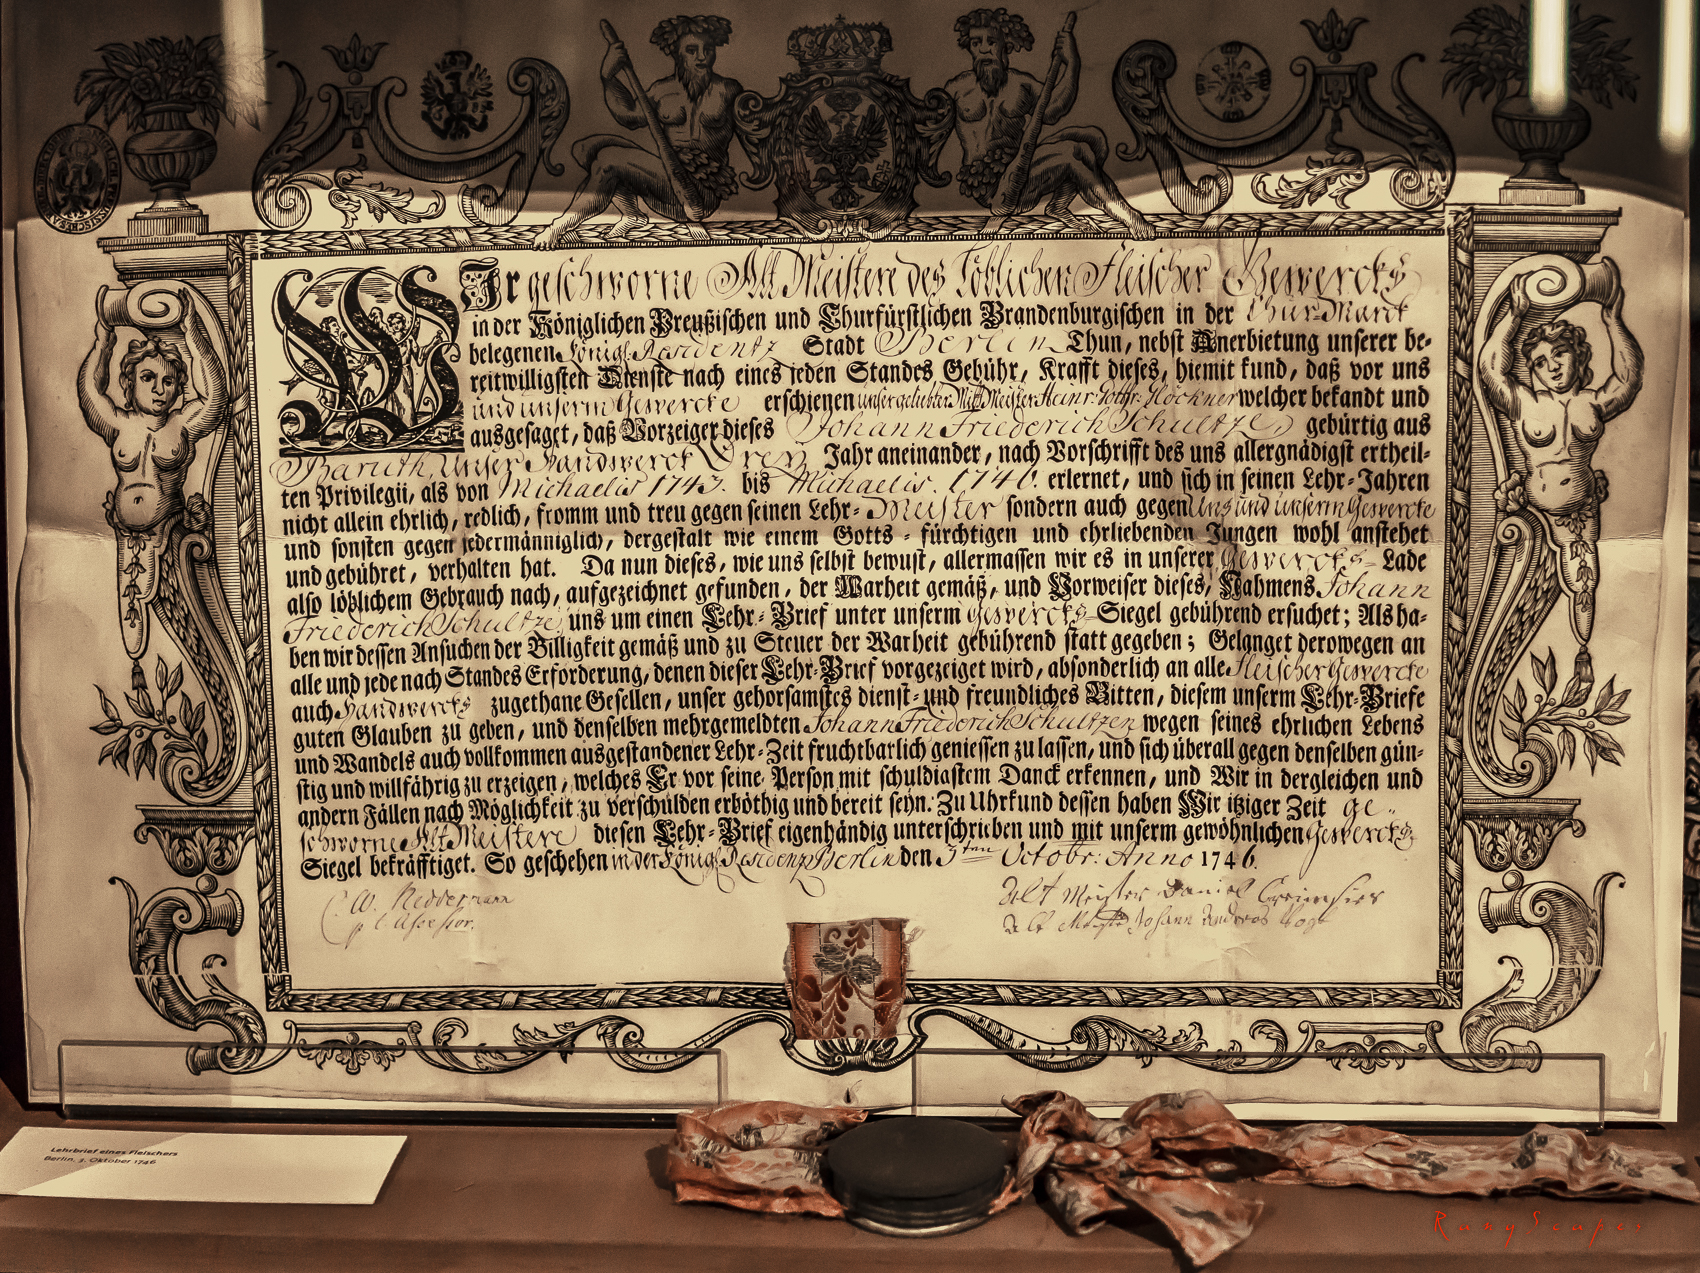 Wir geschworne Alt Meistere des löblichen Fleischer Gewercks
in der Königlichen Preußischen und Churfürstlichen Brandenburgischen in der Chur Marck
belegenen Königl. Residentz Stadt Berlin Thun, nebst Anerbietung unserer be-
reitwilligsten Dienste nach eines jeden Standes Gebühr, Krafft dieses, hiemit kund, daß vor uns
und unserm Gewercke erschienen unser geliebter Mit Meister Heinr. Gothr. Höckner welcher bekandt und
ausgesaget, daß Vorzeiger dieses Johann Friederich Schultze, gebürtig aus
Baruth, Unser Handwerck Drey Jahr aneinander, nach Vorschrifft des uns allergnädigst ertheil-
ten Privilegii, als von Michaelis 1743. bis Michaelis. 1746. erlernet, und sich in seinen Lehr-Jahren
nicht allein ehrlich, redlich, fromm und treu gegen seinen Lehr-Meister sondern auch gegen Uns und unserm Gewercke
und sonsten gegen jedermänniglich, dergestalt wie einem Gotts-fürchtigen und ehrliebenden Jungen wohl anstehet
und gebühret, verhalten hat. Da nun dieses, wie uns selbst bewust, allermassen wir es in unserer Gewercks-Lade
also löblichem Gebrauch nach, aufgezeichnet gefunden, der Warheit gemäß, und Vorweiser dieses, Nahmens Johann
Friederich Schultze, uns um einen Lehr-Brief unter unserm Gewercks-Siegel gebührend ersuchet; Als ha-
ben wir dessen Ansuchen der Billigkeit gemäß und zu Steuer der Warheit gebührend statt gegeben; Gelanget derowegen an
alle und jede nach Standes Erforderung, denen dieser Lehr-Brief vorgezeiget wird, absonderlich an alle Fleischer Gewercke
auch Handwercks zugethane Gesellen, unser gehorsamstes dienst- und freundliches Bitten, diesem unserm Lehr-Briefe
guten Glauben zu geben, und denselben mehrgemeldten Johann Friederich Schultzen wegen seines ehrlichen Lebens
und Wandels auch vollkommen ausgestandener Lehr-Zeit fruchtbarlich geniessen zu lassen, und sich überall gegen denselben gün-
stig und willfährig zu erzeigen, welches Er vor seine Person mit schuldigstem Danck erkennen, und Wir in dergleichen und
andern Fällen nach Möglichkeit zu verschulden erböthig und bereit seyn. Zu Uhrkund dessen haben Wir itziger Zeit ge-
schworne Alt Meistere diesen Lehr-Brief eigenhändig unterschrieben und mit unserm gewöhnlichen Gewercks
Siegel bekräfftiget. So geschehen in der Königl. Residentz Berlin den 3ten Octobr: Anno 1746.
C. W. Reddemann
p. t. Assessor.
Alt Meister Daniel
Alt Meister Johann Andreas Vogt
Lehrbrief eines Fleischers
Berlin, 3. Oktober 1746
RunyScapes